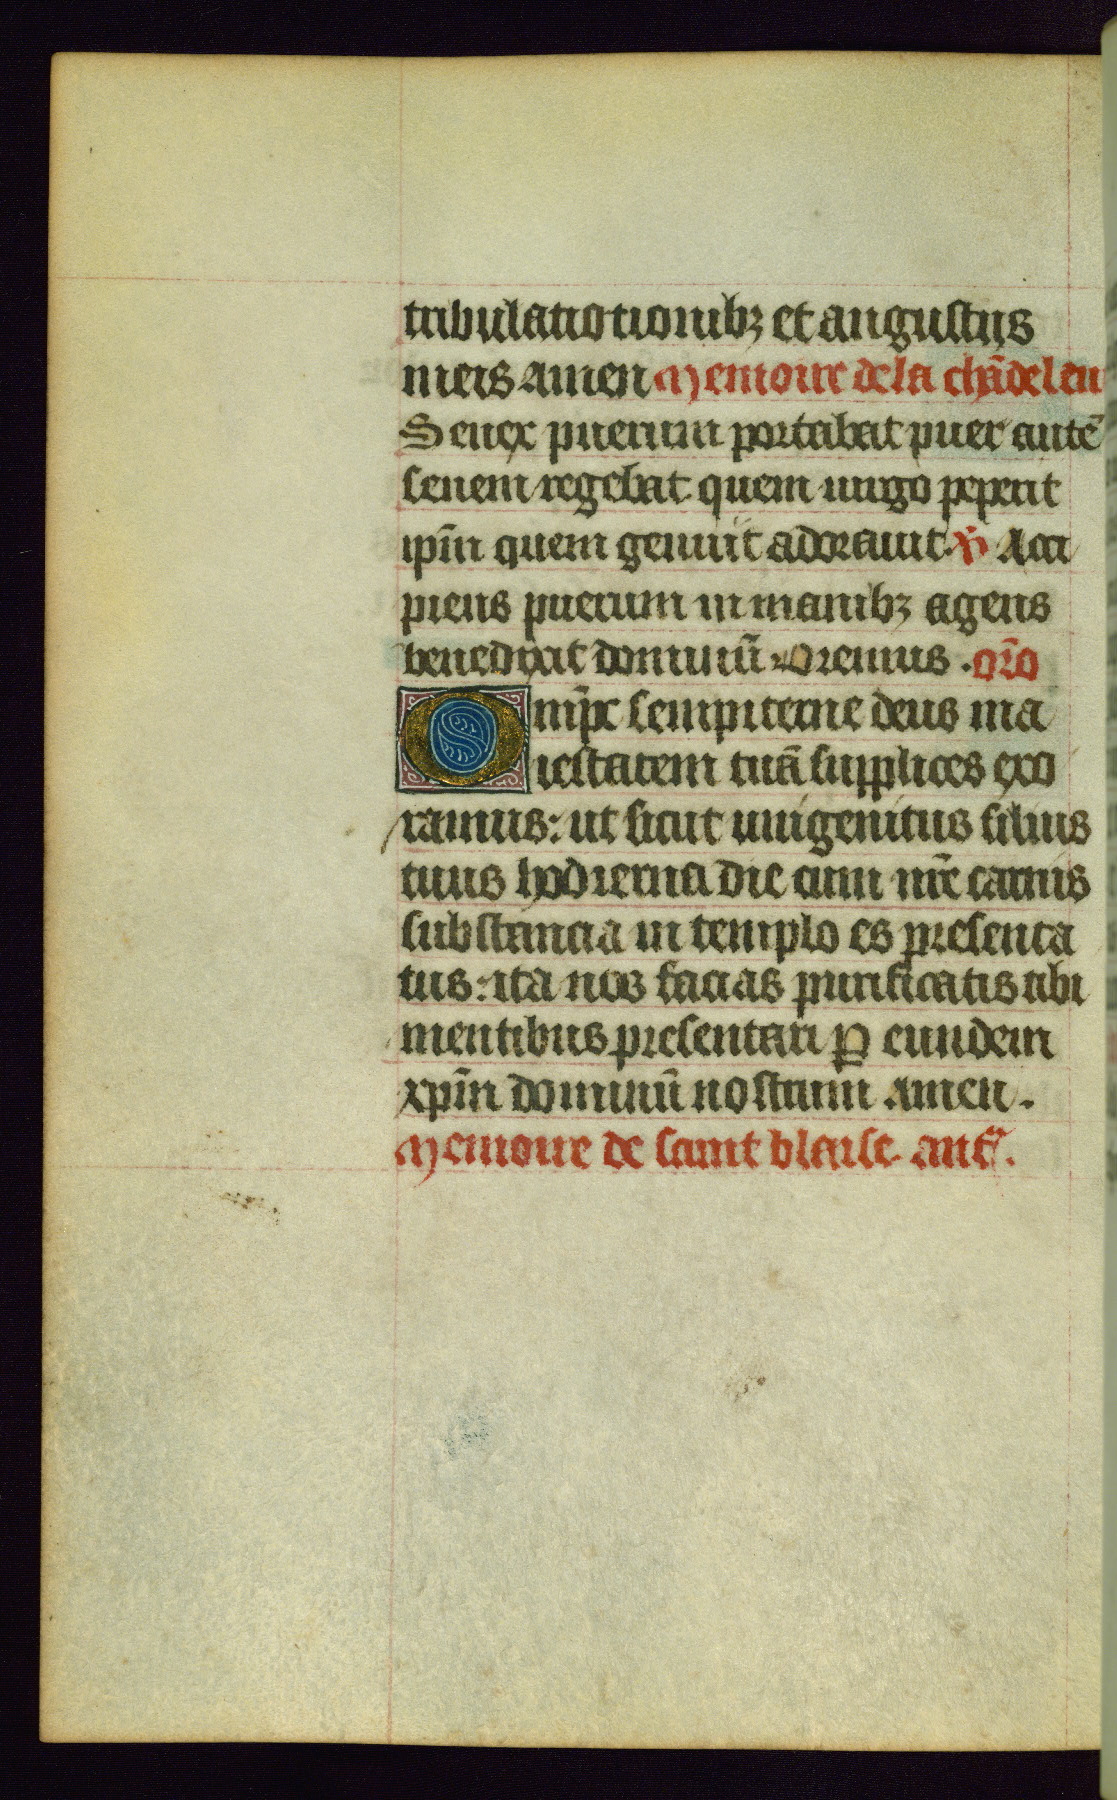 tribulatiotionibꝫ et angustijs
meis Amen Memoire de la chãdeleu
Senex puerum portabat puer autẽ
senem regebat quem uirgo peperit
ip̃m quem genuit adorauit. ꝟ Acci
piens puerum in manibꝫ agens
benedixit dominũ Oremus . or̃o
Omp̃s sempiterne deus ma
iestatem tuã supplices exo
ramus: ut sicut unigenitus filius
tuus hodierna die cum nr̃e carnis
substancia in templo es presenta
tus: ita nos facias purificatis tibi
mentibus presentari ꝑ eundem
xp̃m dominũ nostrum Amen.
Memoire de saint blaise antͣ.